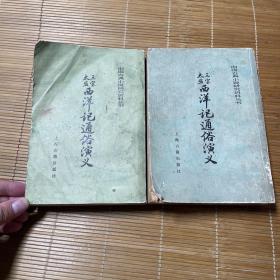 中国古典小说研究资料丛书
三宝
太监
西洋记通俗演义
上海古籍出版社
中国古典小说研究资料丛书
三宝
太监
西洋记通俗演义
上海古籍出版社